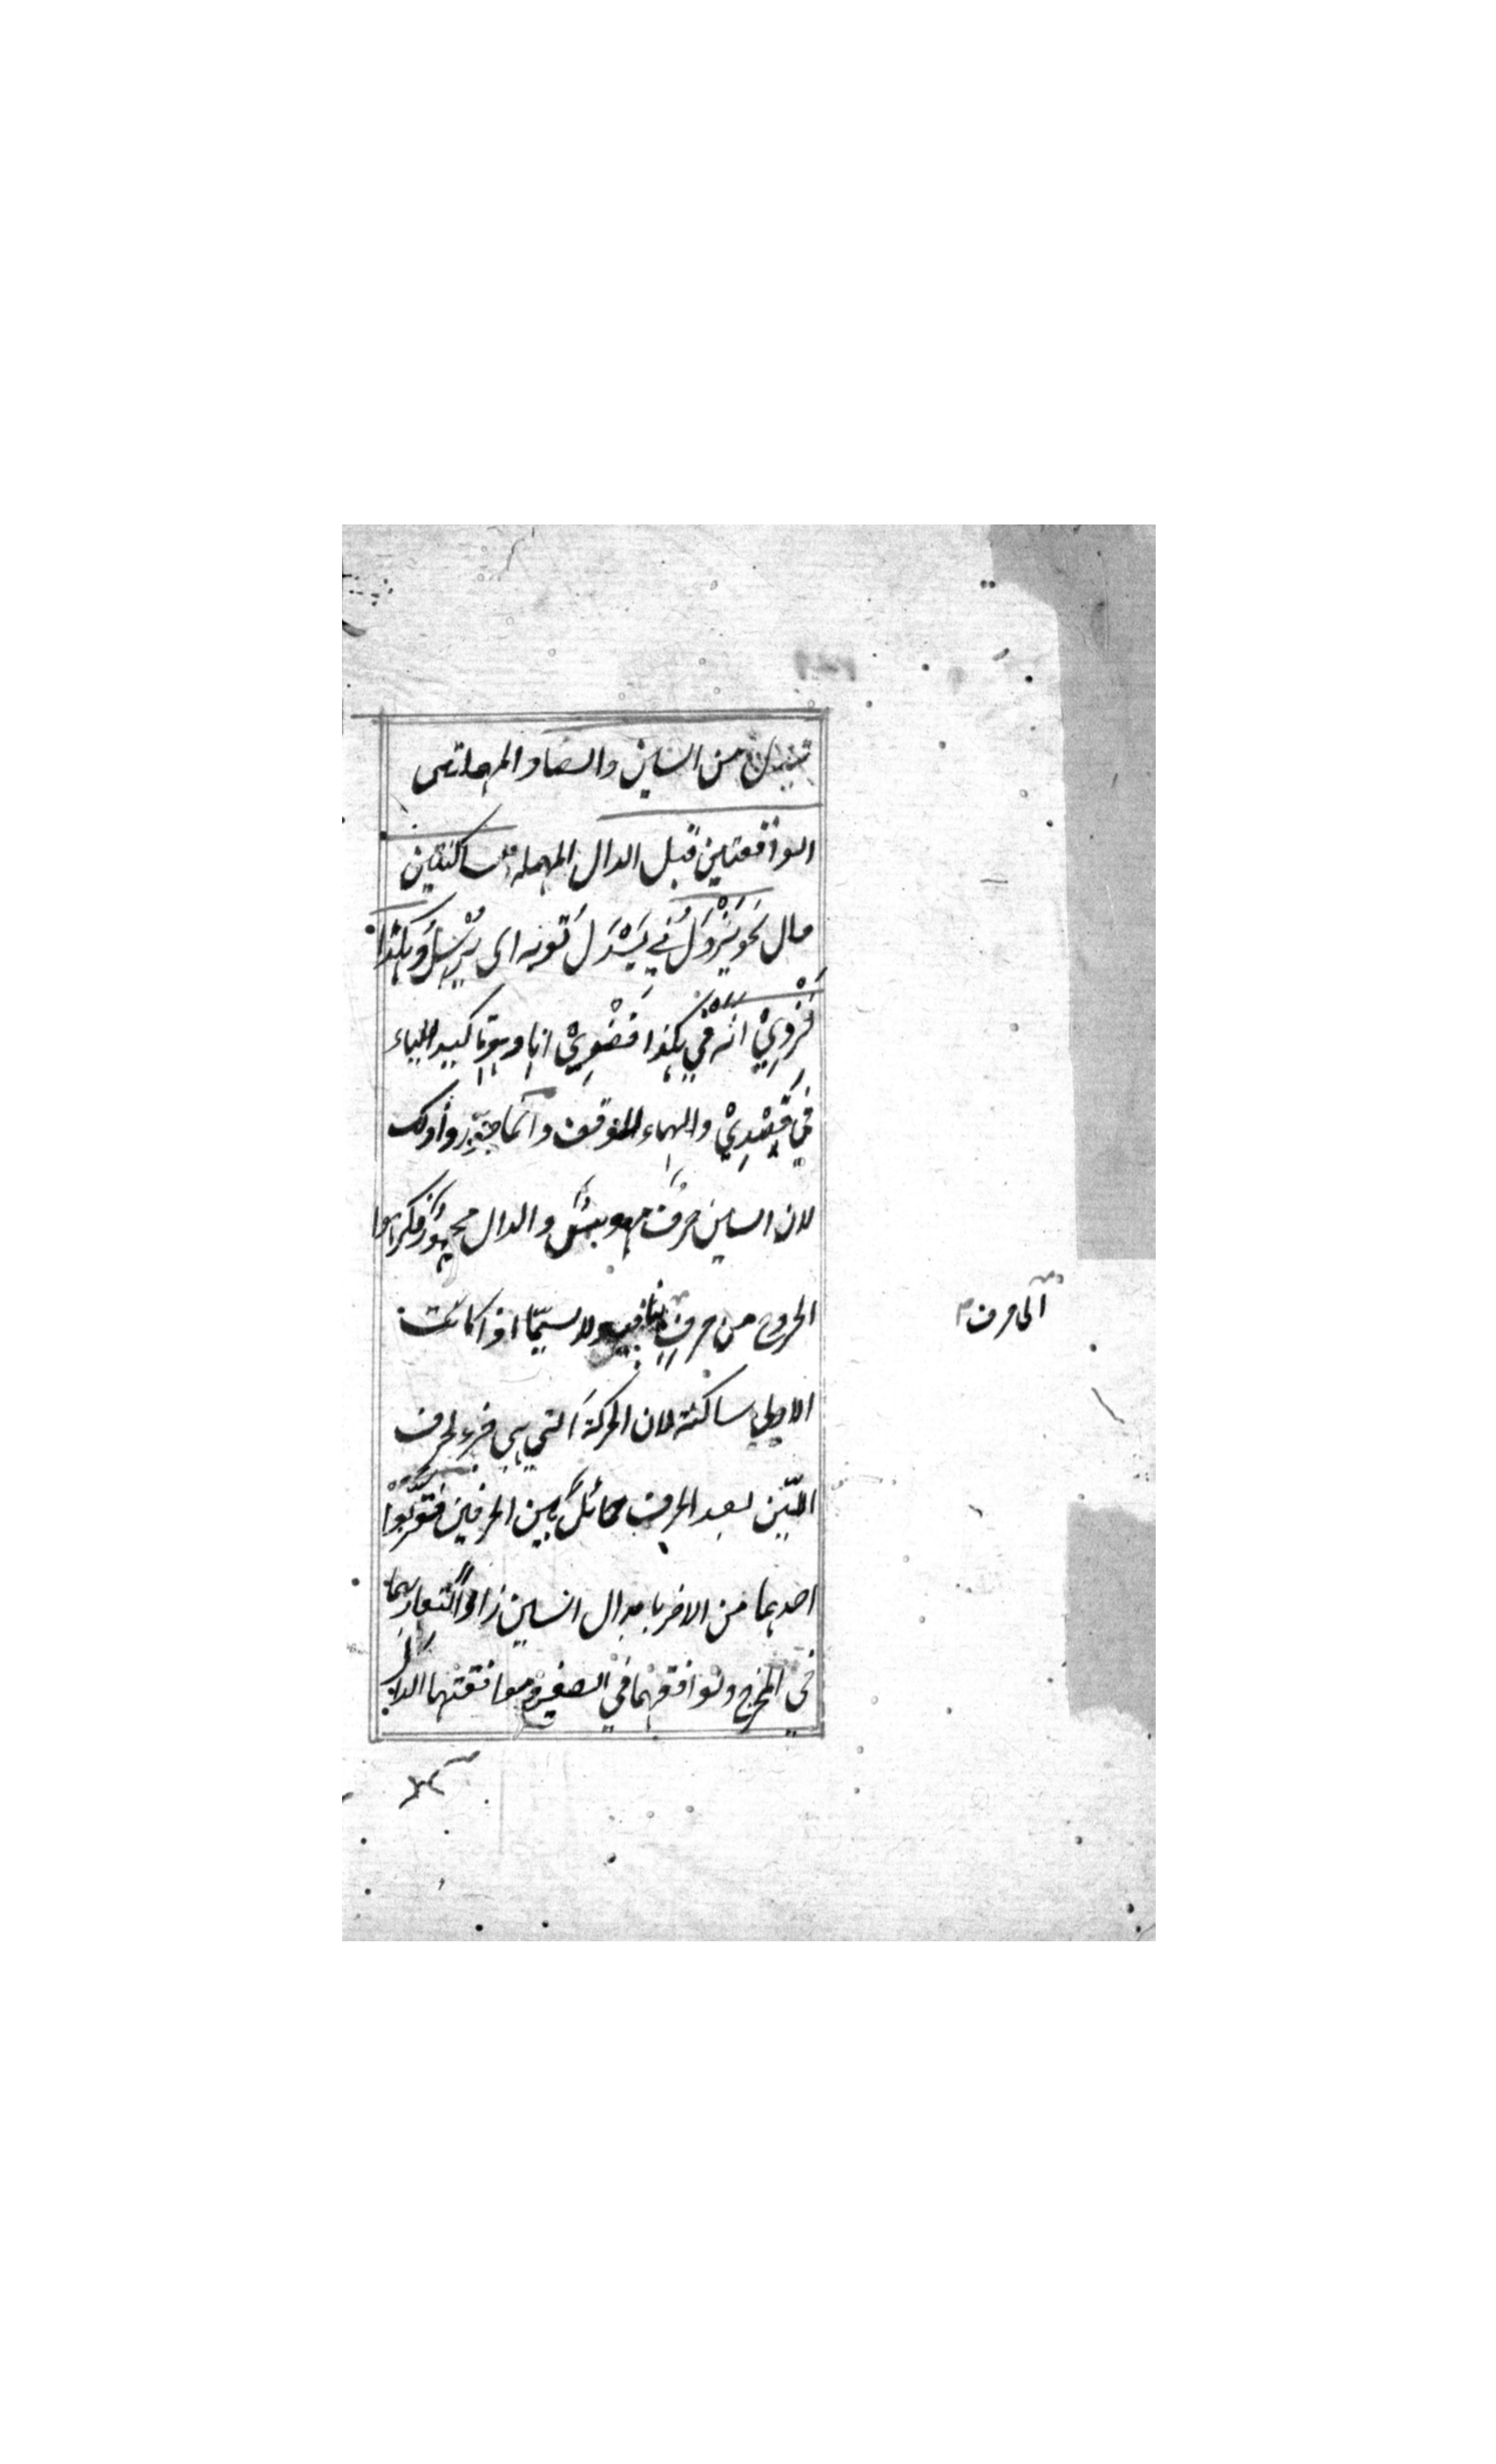 تبدل من السين والصاد المهملتين
الواقعتين قبل الدال المهملة ساكنتين
مال نحو يَزْدَلُ في يَسْدَلُ ثوبه اى يُرْسِلُ وهكذا
فَزْدِيْ انَهْ في هكذا فَصْدِيْ انا وهو تاكيد للياء
في فَصْدِيْ والهاء للوقف وانما جوّزوا ذلك
لان السين حرفٌ مهموسٌ والدال مجهورٌ فكرهوا
الخروج من حرفٍ ينافيه ولا سيّما اذا كانت
الى حرف
الاولى ساكنة لان الحركة التي هي جزء لحرف
اللّين بعد الحرف حائلٌ بين الحرفين فقرّبوا
احدهما من الاخر بابدال السين زاءً لتقاربهما
في المخرج وتوافقهما في الصفير وموافقتهما الدال